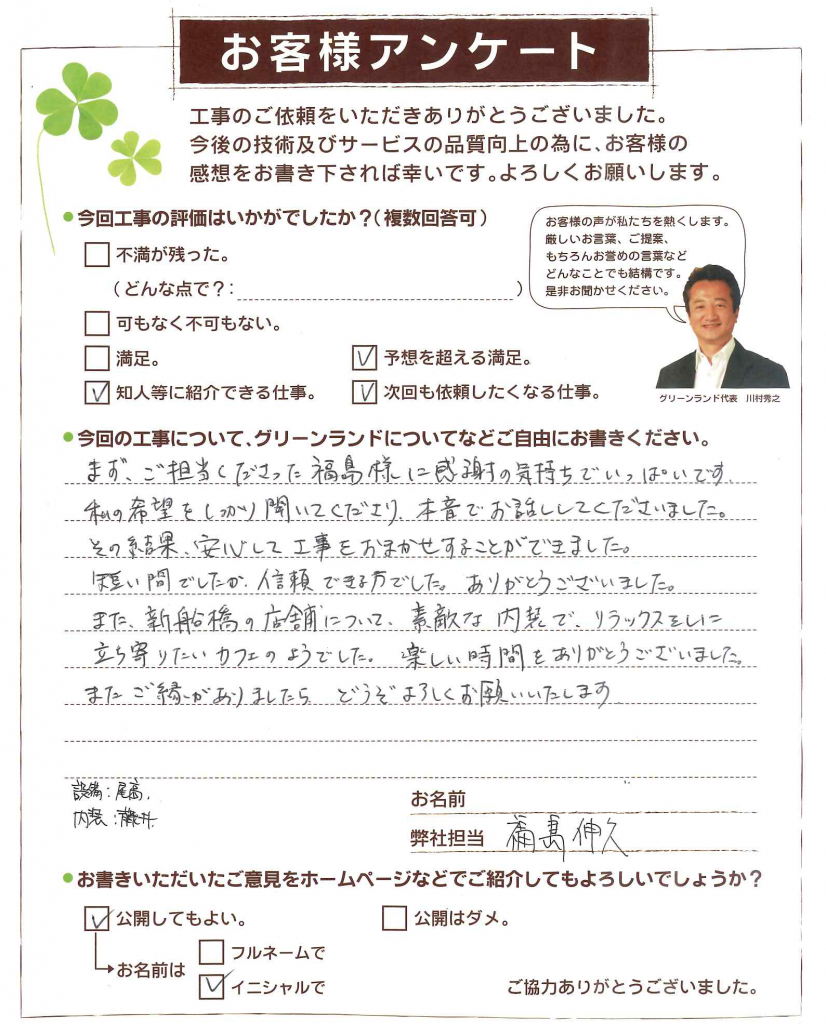 お客様アンケート
工事のご依頼をいただきありがとうございました。
今後の技術及びサービスの品質向上の為に、お客様の
感想をお書き下されば幸いです。よろしくお願いします。
●今回工事の評価はいかがでしたか?(複数回答可)
お客様の声が私たちを熱くします。
厳しいお言葉、ご提案、
もちろんお誉めの言葉など
どんなことでも結構です。
是非お聞かせください。
グリーンランド代表 川村秀之
□不満が残った。
(どんな点で?: )
□可もなく不可もない。
□満足。 ☑予想を超える満足。
☑知人等に紹介できる仕事。 ☑次回も依頼したくなる仕事。
●今回の工事について、グリーンランドについてなどご自由にお書きください。
まず、ご担当くださった福島様に感謝の気持ちでいっぱいです。
私の希望をしっかり聞いてくださり、本音でお話ししてくださいました。
その結果、安心して工事をおまかせすることができました。
短い間でしたが、信頼できる方でした。ありがとうございました。
また、新船橋の店舗について、素敵な内装で、リラックスをしに
立ち寄りたいカフェのようでした。楽しい時間をありがとうございました。
またご縁がありましたら どうぞよろしくお願いいたします
設備:尾高.
内装:藤井.
お名前
弊社担当 福島伸久
●お書きいただいたご意見をホームページなどでご紹介してもよろしいでしょうか?
☑公開してもよい。 □公開はダメ。
お名前は □フルネームで
☑イニシャルで
ご協力ありがとうございました。